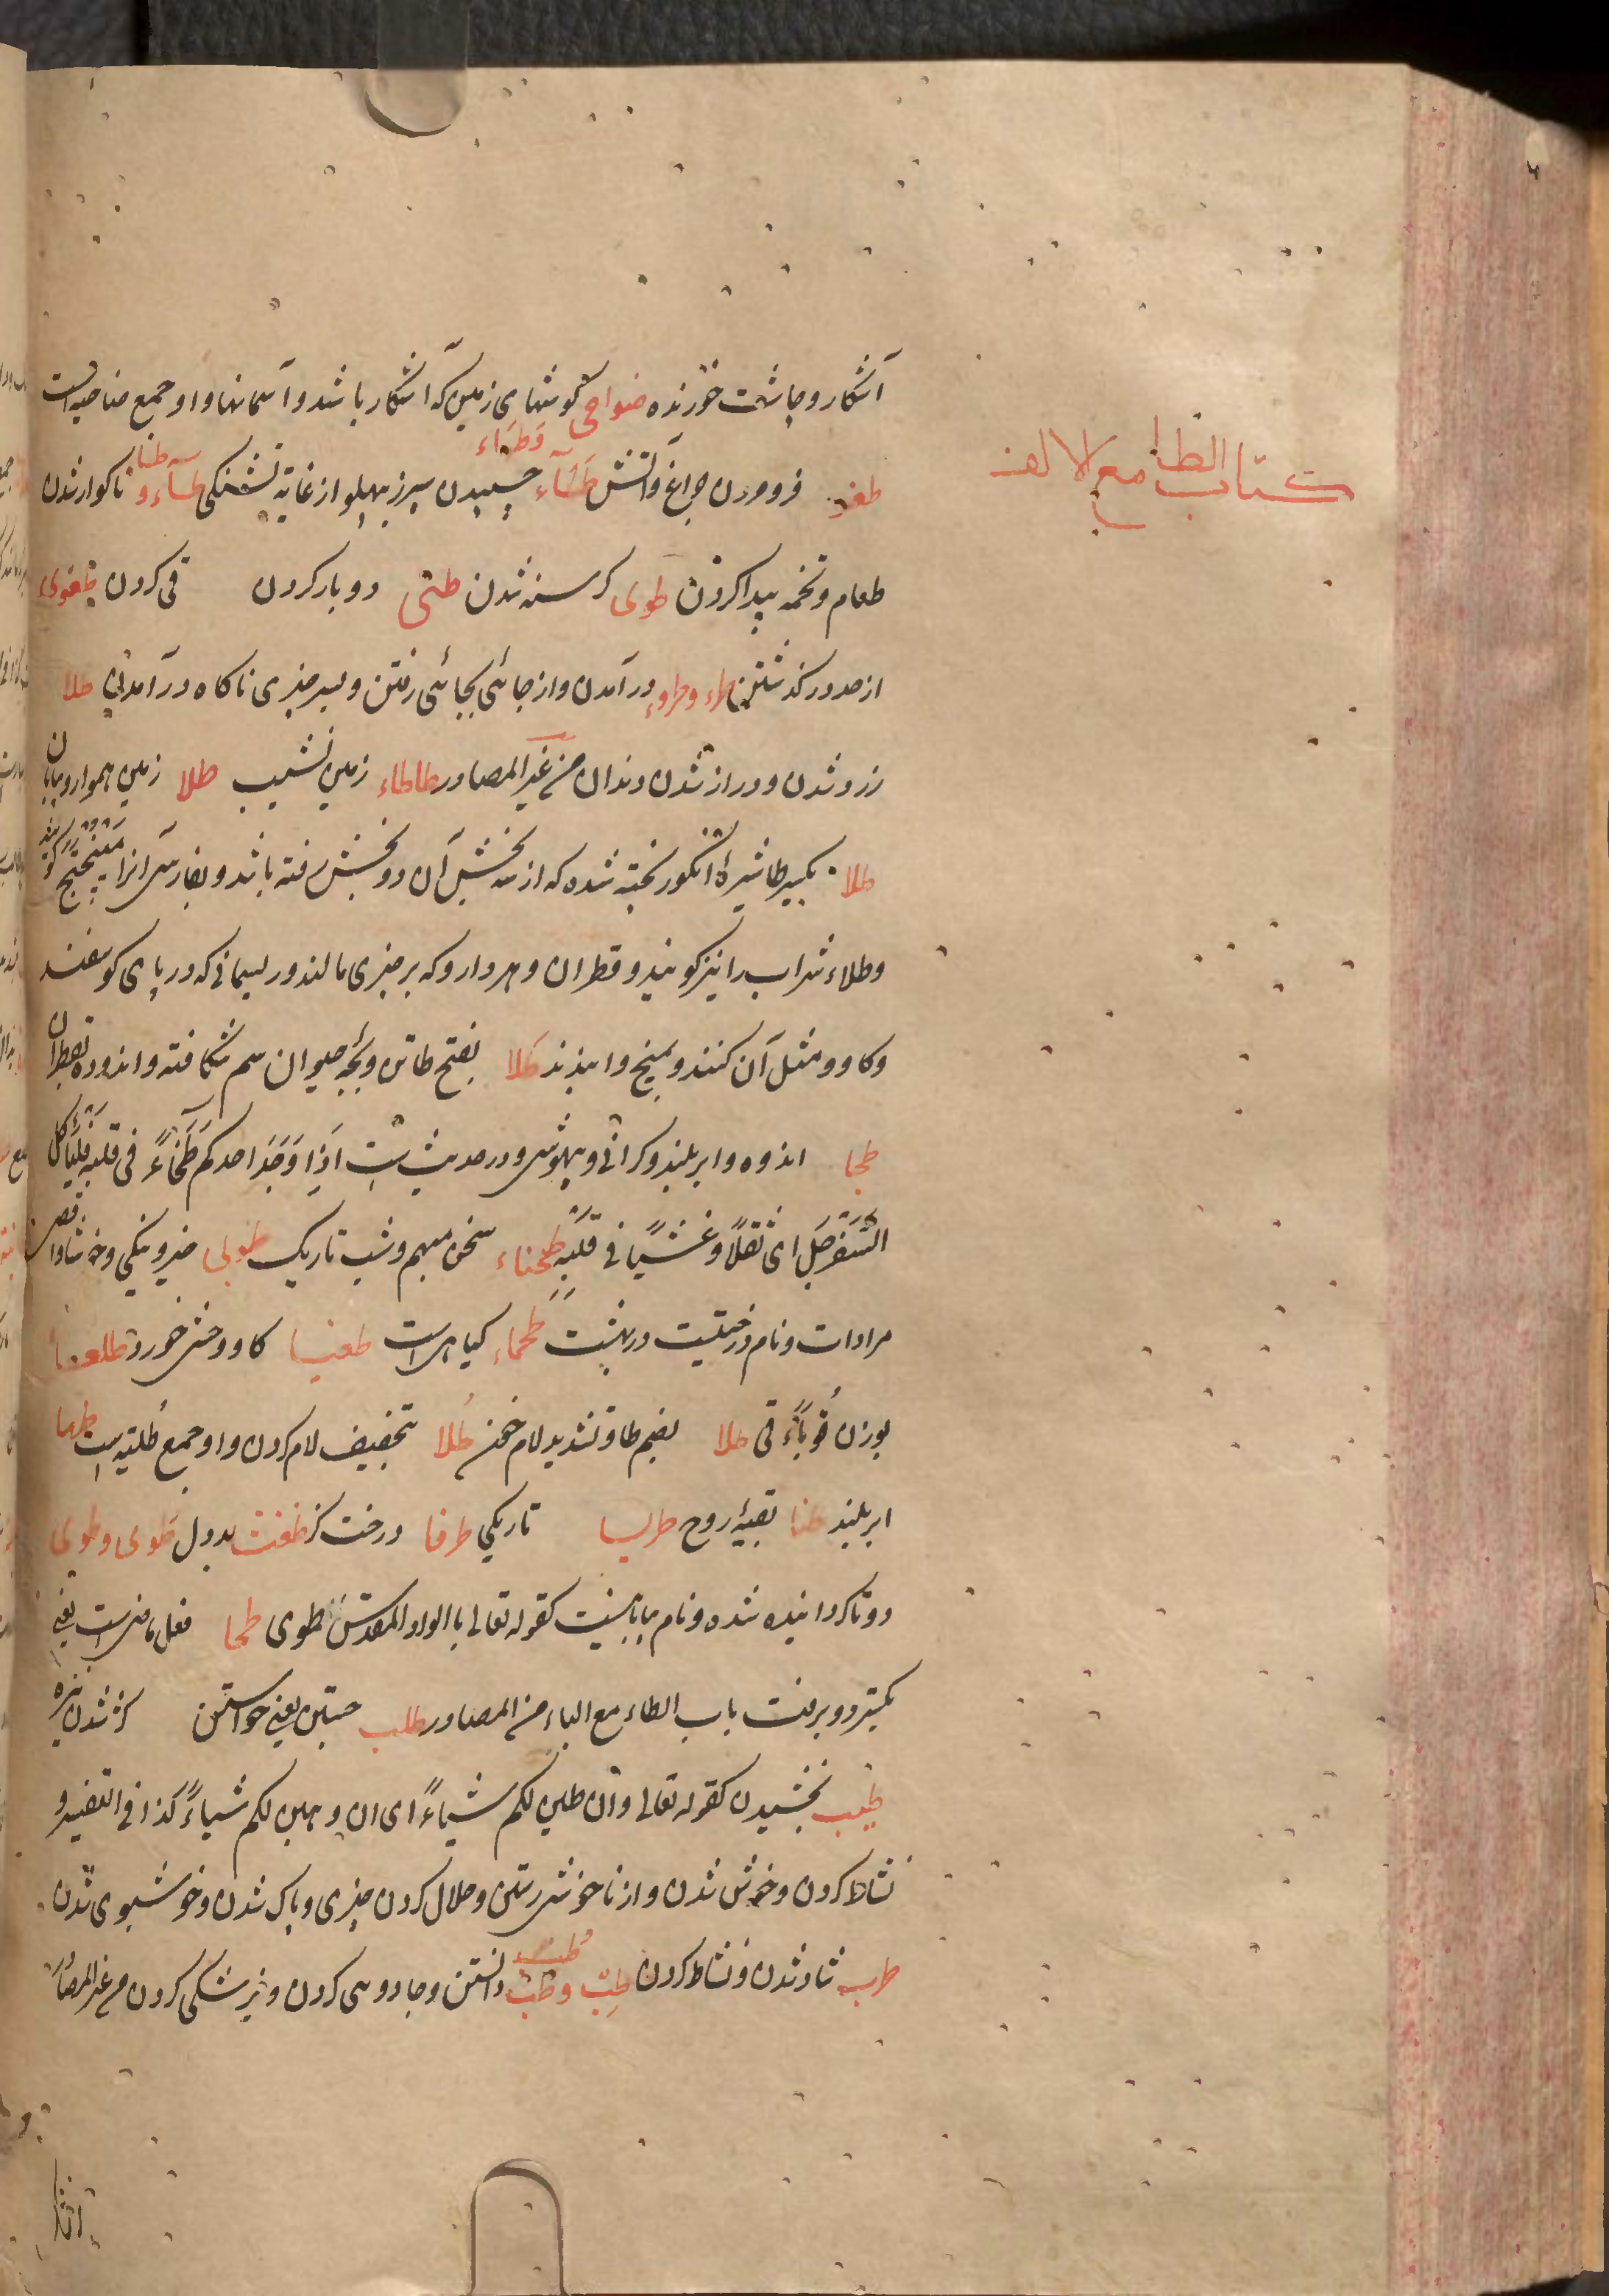 کتاب الطا مع الالف
آشکار و چاشت خورنده ضواحی گوشهای زمین که آشکار باشد و آسمانها و او جمع ضاحیه است
فرومردن چراغ و آتش وطناء چسپیدن سپرز بپهلو از غایة تشنگی ناگوار شدن
طعام و تخمه پیدا کردن طوی گرسنه شدن طثی دوبار کردن قی کردن طغوی
از حد درگذشتن طراء و طروء درآمدن و از جائی بجائی رفتن و بسر چیزی ناگاه درآمدن طلا
زرد شدن و دراز شدن دندان من غیر المصادر طاطاء زمین نشیب طلا زمین هموار و بیابان
طلا بکسر طا شیرهٔ انگور پخته شده که از سه بخش آن دو بخش رفته باشد و بفارسی آنرا میپختج گویند
وطلاء شراب را نیز گویند و قطران و هر دارو که بر چیزی مالند و ریسمانی که در پای گوسفند
و گاو و مثل آن کنند و بمیخ وابندند طلا بفتح طا تن و بچهٔ حیوان سم شکافته و اندوده بقطران
طخا اندوه و ابر بلند و گرانی و بیهوشی و در حدیث است اذا وجد احدکم طخاءً فی قلبه فلیأکل
السفرجل ای ثقلاً و غشیاً فی قلبه طخیاء سخن مبهم و شب تاریک طوبی خیر و نیکی و خوشا و اقصی
مرادات و نام درختیست در بهشت طحماء گیاهی است طغیا گاو وحشی خورد
بوزن قوباء قی طلا بضم طا و تشدید لام خون طلا بتخفیف لام گردن و او جمع طلیة است طها
ابر بلند طنا بقیهٔ روح تاریکی طرفا درخت گز طوی و طوی
دوتا گردانیده شده و نام بیابانیست کقوله تعالی بالواد المقدس طوی طحا فعل ماضی است یعنی
بگسترد و برفت باب الطاء مع الباء من المصادر طلب جستن یعنی خواستن
طیب بخشیدن کقوله تعالی وان طبن لکم شیاءً ای ان وهبن لکم شیاءً کذا فی التفسیر و
نشاط کردن و خوش شدن و از ناخوشی رستن و حلال کردن چیزی و پاک شدن و خوشبوی شدن
طرب شاد شدن و نشاط کردن طب وطب دانستن و جادوهی کردن و پزشکی کردن من غیر المصادر